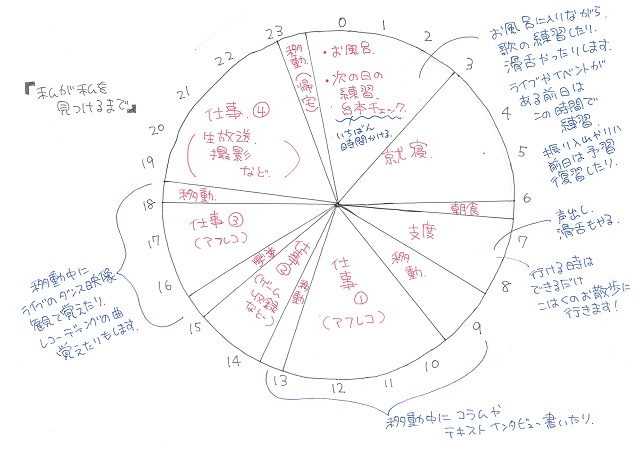 『私が私を
見つけるまで』
0
2
3
4
5
6
7
8
9
10
11
12
13
14
15
16
17
18
19
20
21
22
22
23
移動
(帰宅)
・お風呂
・次の日の
練習
台本チェック
いちばん
時間かける。
就寝
朝食
支度
移動
仕事
①
(アフレコ)
移動
仕事
②
(ゲーム
収録
など)
移動
仕事③
(アフレコ)
移動
仕事④
(生放送
撮影
など)
お風呂に入りながら
歌の練習したり、
滑舌やったりします。
ライブやイベントが
ある前日は
この時間で
練習。
振り入れやリハ
前日は予習
復習したり。
声出し、
滑舌もやる。
行ける時は
できるだけ
こはくのお散歩に
行きます!
移動中にコラムや
テキストインタビュー書いたり。
移動中に
ライブのダンス映像
観て覚えたり、
レコーディングの曲
覚えたりもします。